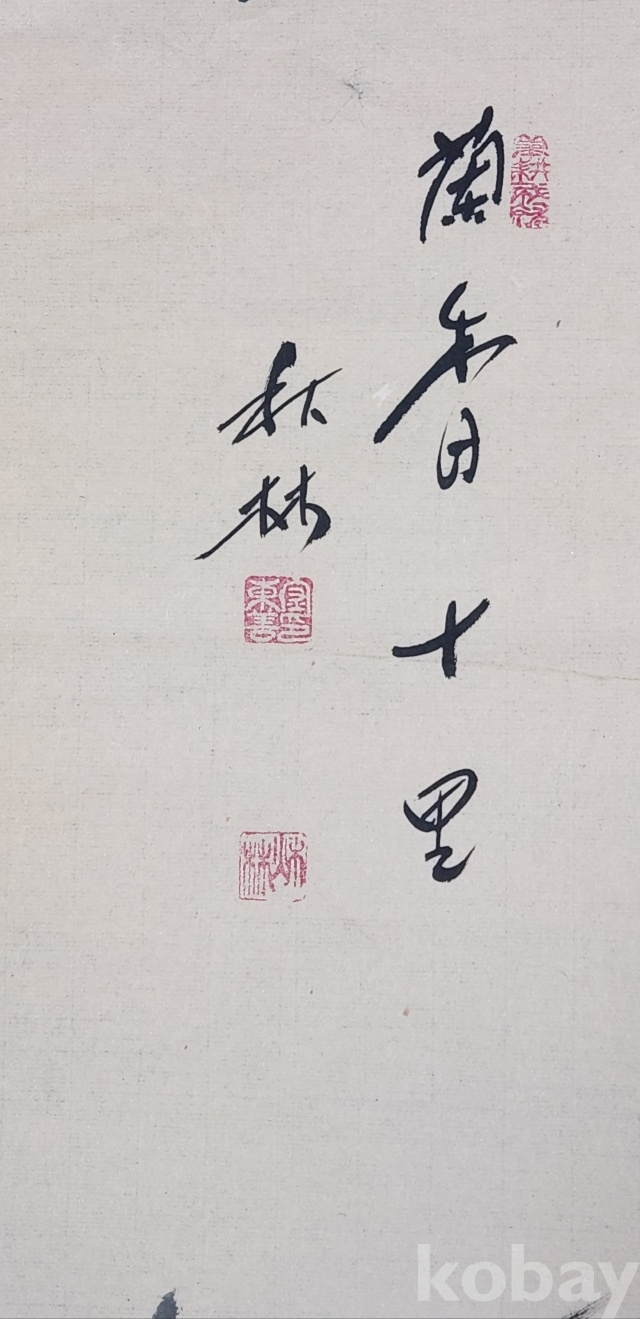 蘭香十里
秋林
kobay